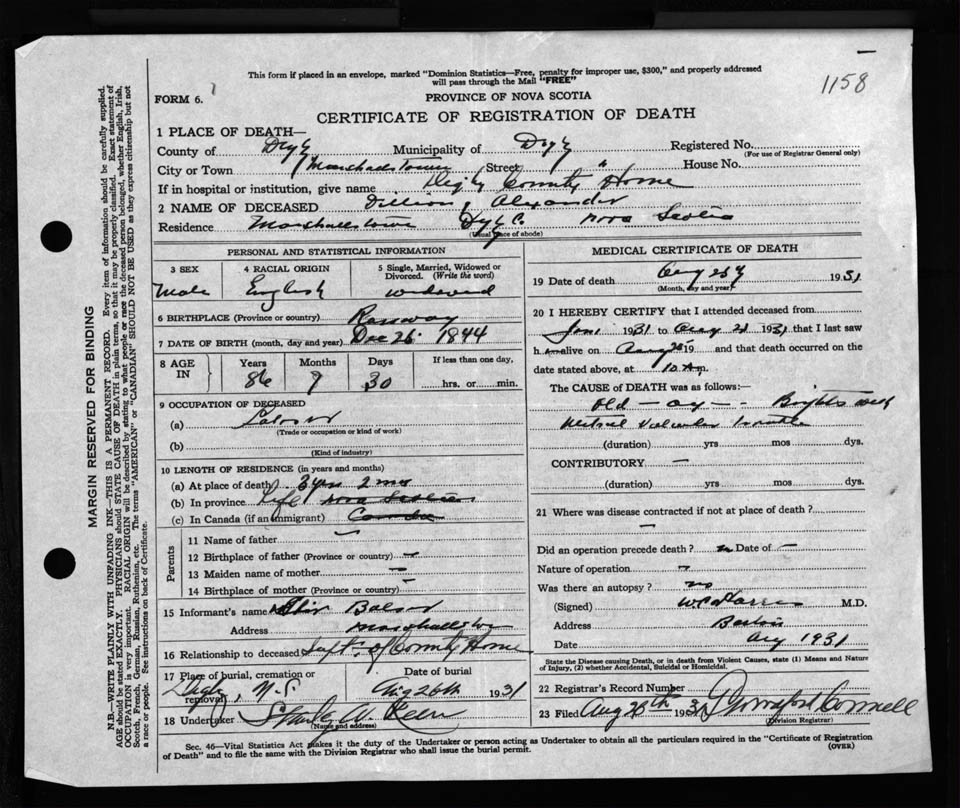 This form if placed in an envelope, marked "Dominion Statistics—Free, penalty for improper use, $300," and properly addressed
will pass through the Mail "FREE"
1158
FORM 6.
PROVINCE OF NOVA SCOTIA
CERTIFICATE OF REGISTRATION OF DEATH
MARGIN RESERVED FOR BINDING
N.B.—WRITE PLAINLY WITH UNFADING INK—THIS IS A PERMANENT RECORD. Every item of information should be carefully supplied.
AGE should be stated EXACTLY. PHYSICIANS should STATE CAUSE OF DEATH in plain terms, so that it may be properly classified. Exact statement of
OCCUPATION is very important. RACIAL ORIGIN will be described by stating to what people or race the deceased person belonged, whether English, Irish,
Scotch, French, German, Russian, Ruthenian, etc. The terms "AMERICAN" or "CANADIAN" SHOULD NOT BE USED as they express citizenship but not
a race or people. See instructions on back of Certificate.
1 PLACE OF DEATH—
County of Digby Municipality of Digby Registered No.
(For use of Registrar General only)
City or Town Marshalltown Street " House No.
If in hospital or institution, give name Digby County Home
2 NAME OF DECEASED Dillion, Alexander
Residence Marshalltown Digby C. Nova Scotia
(Usual place of abode)
PERSONAL AND STATISTICAL INFORMATION
3 SEX 4 RACIAL ORIGIN 5 Single, Married, Widowed or
Divorced. (Write the word)
Male English Widowed
6 BIRTHPLACE (Province or country) Rossway
7 DATE OF BIRTH (month, day and year) Dec 26 1844
8 AGE IN Years Months Days If less than one day,
86 7 30 hrs. or min.
9 OCCUPATION OF DECEASED
(a) Labor
(Trade or occupation or kind of work)
(b)
(Kind of industry)
10 LENGTH OF RESIDENCE (in years and months)
(a) At place of death 3 yrs 2 mos
(b) In province Life Nova Scotia
(c) In Canada (if an immigrant) Canada
Parents
11 Name of father —
12 Birthplace of father (Province or country) —
13 Maiden name of mother —
14 Birthplace of mother (Province or country) —
15 Informant's name Balsor
Address Marshalltown
16 Relationship to deceased Supt. of County Home
17 Place of burial, cremation or removal Date of burial
Digby, N.S. Aug 26th 1931
18 Undertaker Stanley W.
(Name and address)
MEDICAL CERTIFICATE OF DEATH
19 Date of death Aug 25 1931
(Month, day and year)
20 I HEREBY CERTIFY that I attended deceased from
Jan 1931 to Aug 21 1931 that I last saw
h alive on Aug 19 and that death occurred on the
date stated above, at 10 Am.
The CAUSE of DEATH was as follows:—
Old — age — Brights
Mitral Valvular
(duration) yrs mos dys.
CONTRIBUTORY —
(duration) yrs mos dys.
21 Where was disease contracted if not at place of death?
—
Did an operation precede death? Date of —
Nature of operation
Was there an autopsy? no
(Signed) M.D.
Address
Date Aug 1931
State the Disease causing Death, or in death from Violent Causes, state (1) Means and Nature
of Injury, (2) whether Accidental, Suicidal or Homicidal.
22 Registrar's Record Number
23 Filed Aug 28th 1931
Division Registrar
Sec. 46—Vital Statistics Act makes it the duty of the Undertaker or person acting as Undertaker to obtain all the particulars required in the "Certificate of Registration
of Death" and to file the same with the Division Registrar who shall issue the burial permit.
(OVER)